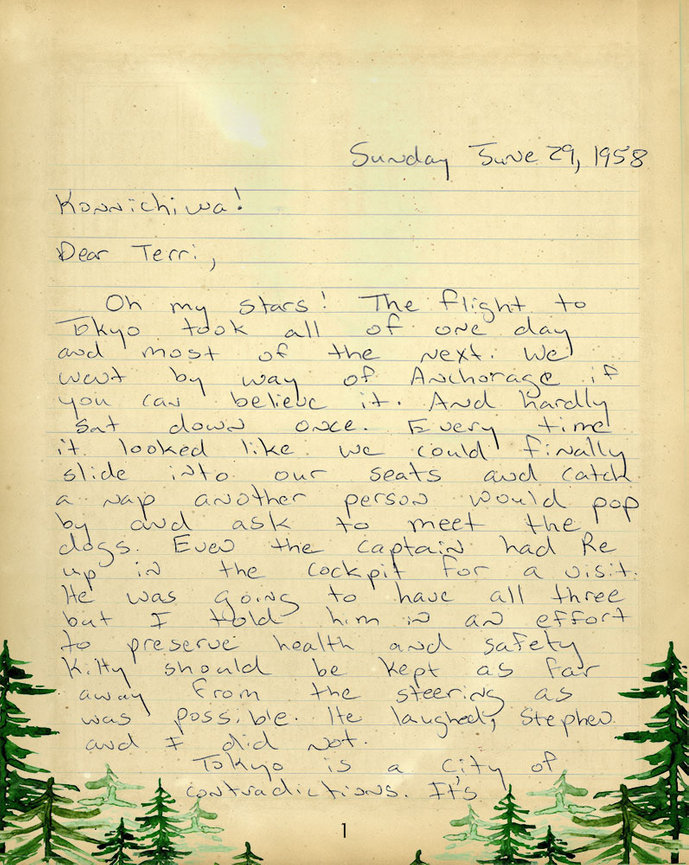 Sunday June 29, 1958
Konnichiwa!
Dear Terri,
Oh my stars! The flight to
Tokyo took all of one day
and most of the next. We
went by way of Anchorage if
you can believe it. And hardly
sat down once. Every time
it looked like we could finally
slide into our seats and catch
a nap another person would pop
by and ask to meet the
dogs. Even the captain had Re
up in the cockpit for a visit.
He was going to have all three
but I told him in an effort
to preserve health and safety
Kitty should be kept as far
away from the steering as
was possible. He laughed, Stephen
and I did not.
Tokyo is a city of
contradictions. It's
1